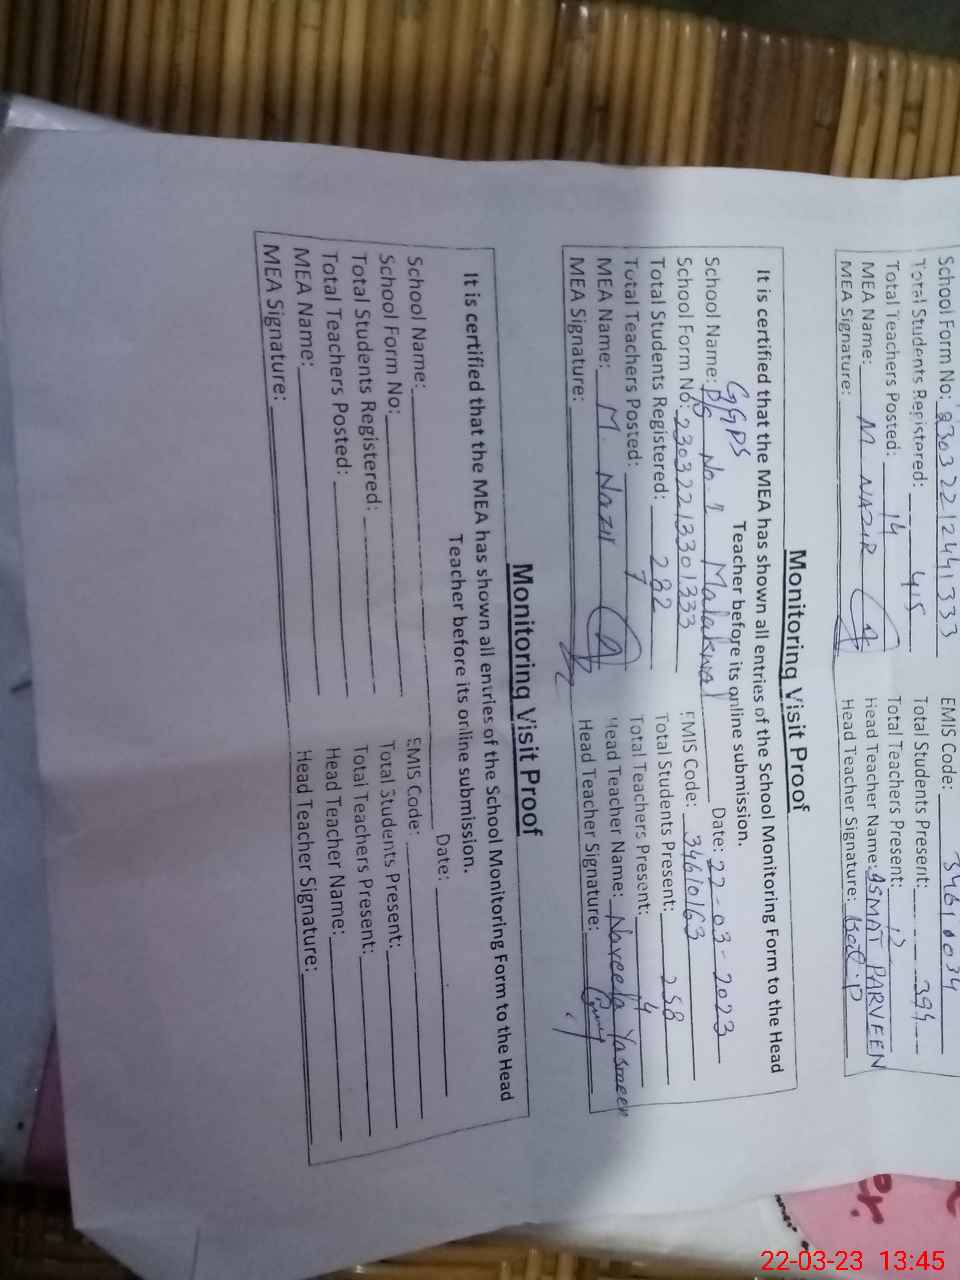 School Form No: 23032212441333 EMIS Code: 34610034
Total Students Registered: 415 Total Students Present: 394
Total Teachers Posted: 14 Total Teachers Present: 12
MEA Name: M NAZIR Head Teacher Name: ASMAT PARVEEN
MEA Signature: Head Teacher Signature:
Monitoring Visit Proof
It is certified that the MEA has shown all entries of the School Monitoring Form to the Head
Teacher before its online submission.
GGPS
School Name: P/S No. 1 Malakwal Date: 22-03-2023
School Form No: 23032213301333 EMIS Code: 34610163
Total Students Registered: 282 Total Students Present: 258
Total Teachers Posted: 7 Total Teachers Present: 4
MEA Name: M. Nazir Head Teacher Name: Naveela Yasmeen
MEA Signature: Head Teacher Signature:
Monitoring Visit Proof
It is certified that the MEA has shown all entries of the School Monitoring Form to the Head
Teacher before its online submission.
School Name: Date:
School Form No: EMIS Code:
Total Students Registered: Total Students Present:
Total Teachers Posted: Total Teachers Present:
MEA Name: Head Teacher Name:
MEA Signature: Head Teacher Signature:
22-03-23 13:45